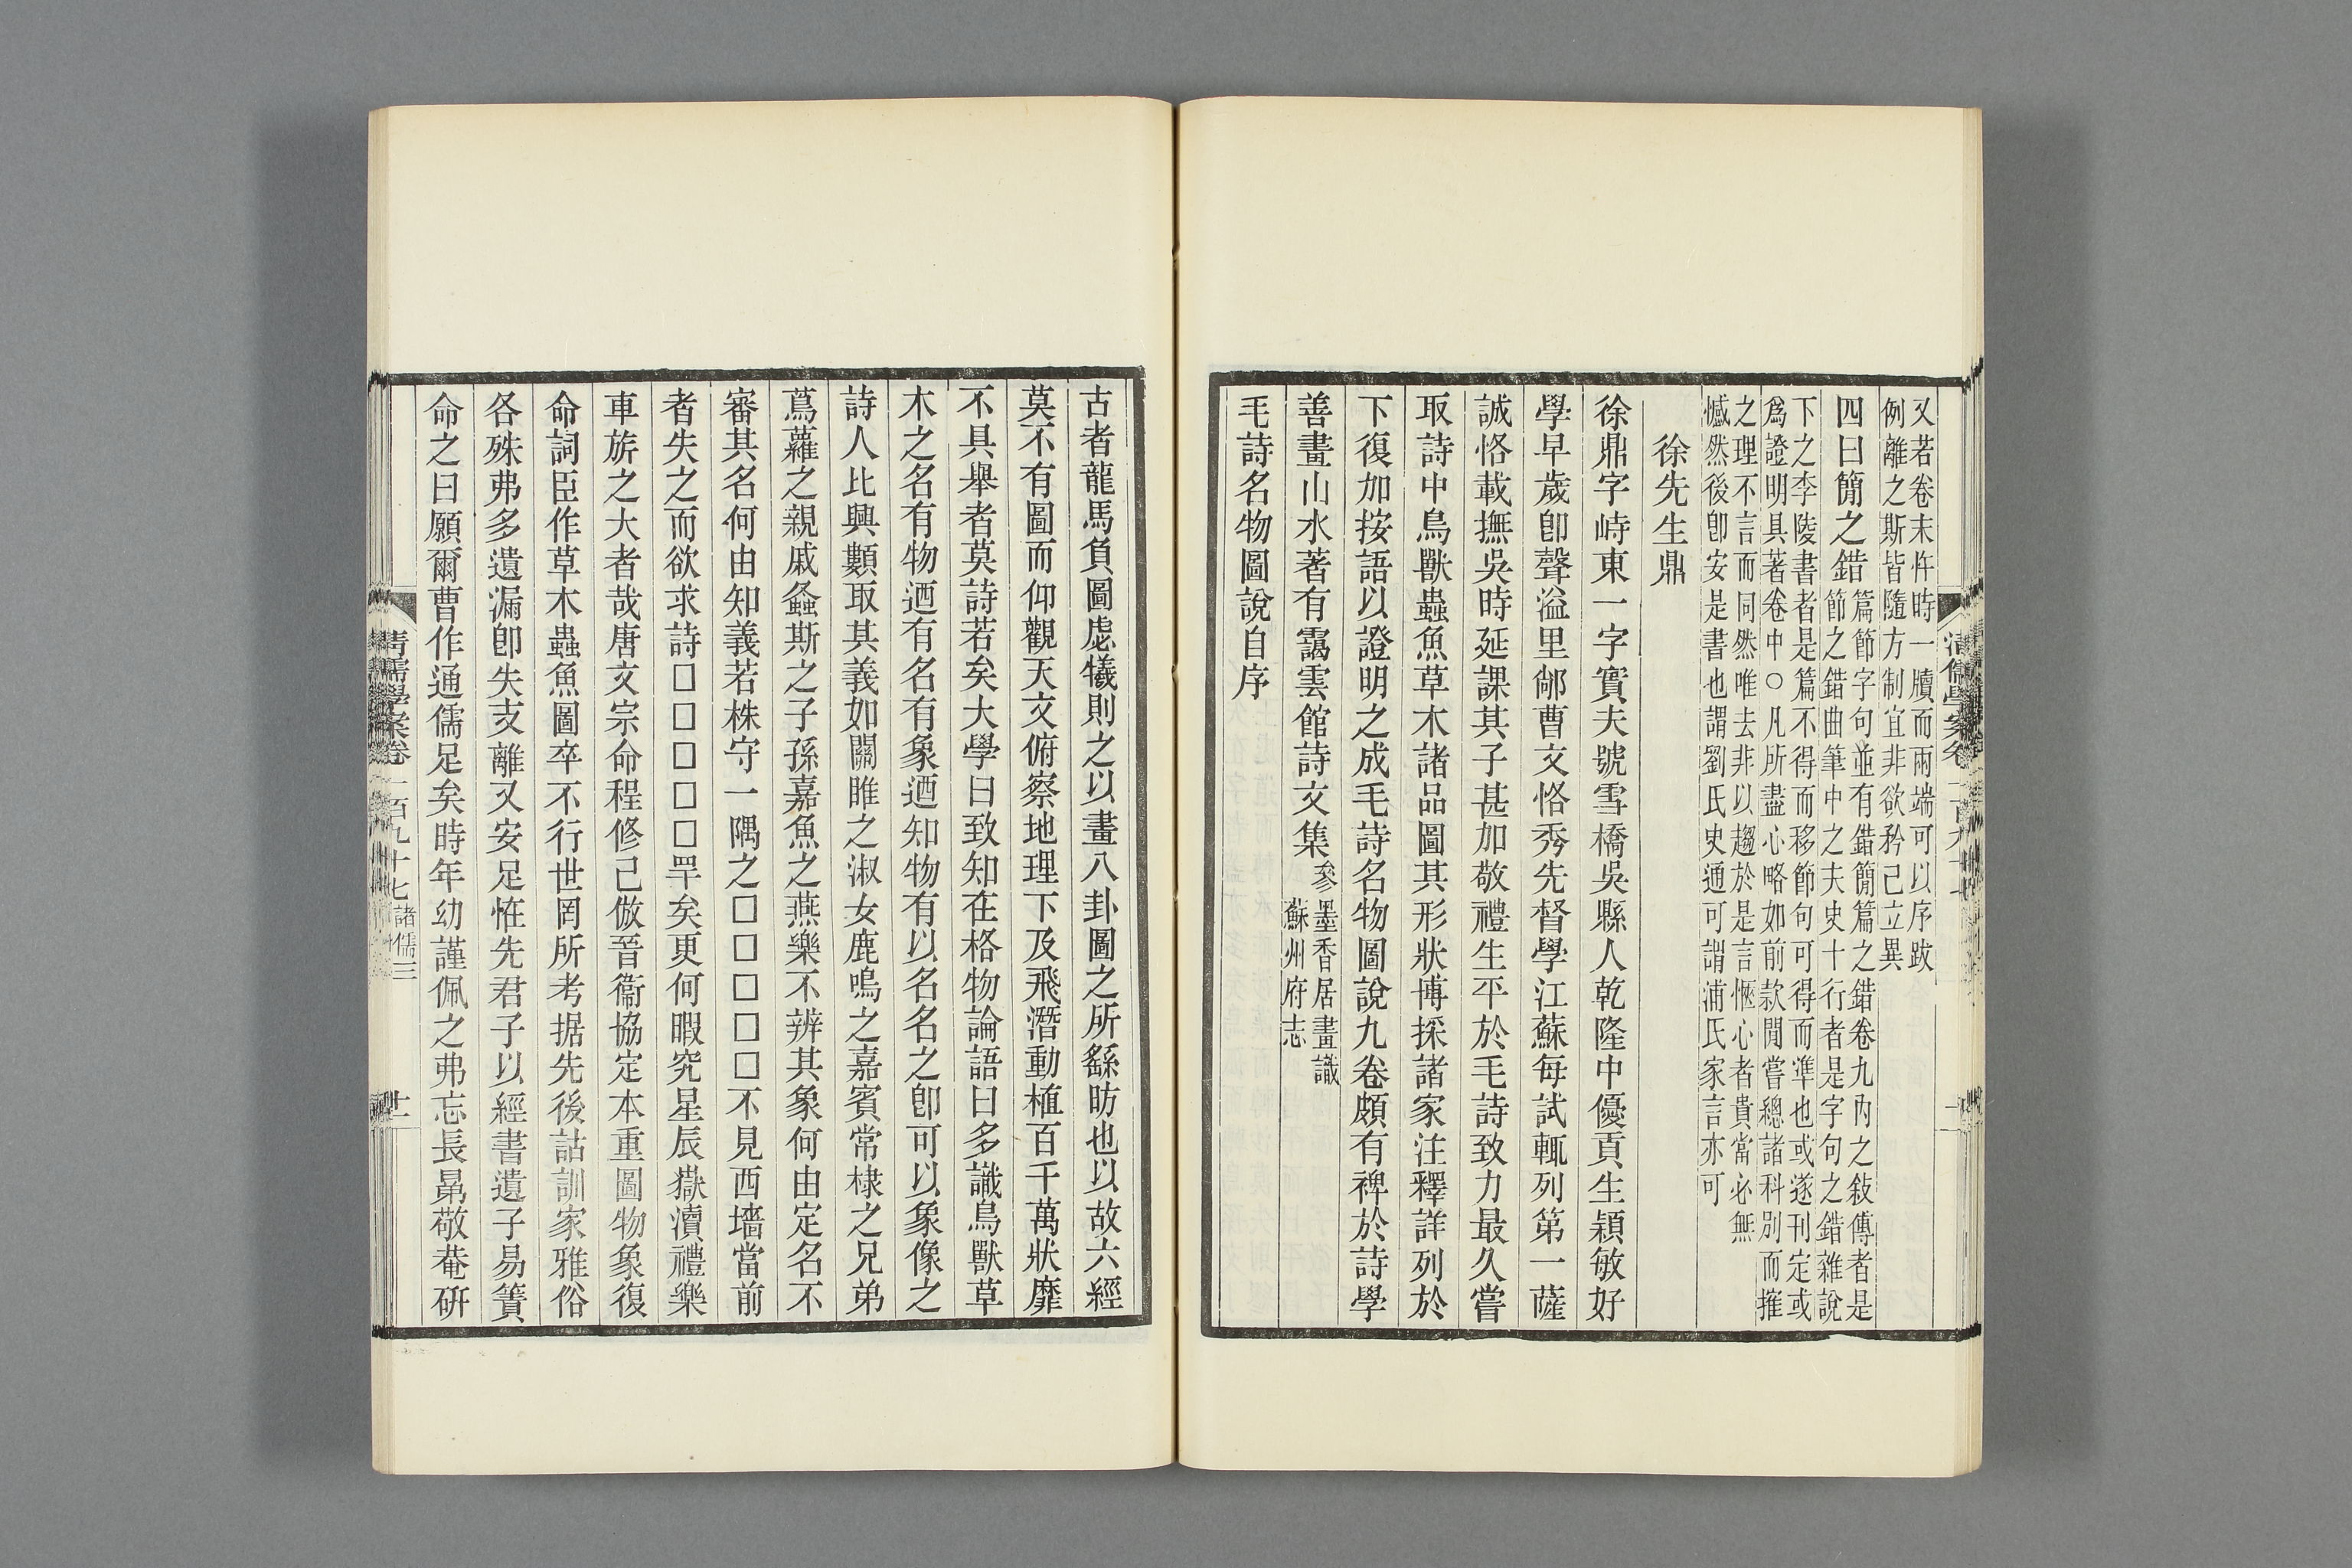 又若卷末件時一牘而兩端可以序跋
例離之斯皆隨方制宜非欲矜己立異
四曰簡之錯篇節字句並有錯簡篇之錯卷九內之敍傳者是
節之錯曲筆中之夫史十行者是字句之錯雜說
下之李陵書者是篇不得而移節句可得而準也或遂刊定或
爲證明具著卷中○凡所盡心略如前款閒嘗總諸科別而搉
之理不言而同然唯去非以趨於是言愜心者貴當必無
憾然後卽安是書也謂劉氏史通可謂浦氏家言亦可
徐先生鼎
徐鼎字峙東一字實夫號雪橋吳縣人乾隆中優貢生穎敏好
學早歲卽聲溢里郷曹文恪秀先督學江蘇每試輒列第一薩
誠恪載撫吳時延課其子甚加敬禮生平於毛詩致力最久嘗
取詩中鳥獸蟲魚草木諸品圖其形狀博採諸家注釋詳列於
下復加按語以證明之成毛詩名物圖說九卷頗有裨於詩學
善畫山水著有靄雲館詩文集參墨香居畫識
蘇州府志
毛詩名物圖說自序
古者龍馬負圖虙犧則之以畫八卦圖之所繇昉也以故六經
莫不有圖而仰觀天文俯察地理下及飛潛動植百千萬狀靡
不具舉者莫詩若矣大學曰致知在格物論語曰多識鳥獸草
木之名有物迺有名有象迺知物有以名名之卽可以象像之
詩人比興類取其義如關雎之淑女鹿鳴之嘉賓常棣之兄弟
蔦蘿之親戚螽斯之子孫嘉魚之燕樂不辨其象何由定名不
審其名何由知義若株守一隅之□□□□□不見西墻當前
者失之而欲求詩□□□□□罕矣更何暇究星辰嶽瀆禮樂
車旂之大者哉唐文宗命程修己倣晉衞協定本重圖物象復
命詞臣作草木蟲魚圖卒不行世罔所考据先後詁訓家雅俗
各殊弗多遺漏卽失支離又安足恠先君子以經書遺子易簀
命之曰願爾曹作通儒足矣時年幼謹佩之弗忘長晜敬菴硏
清儒學案卷一百九十七 諸儒三
十二